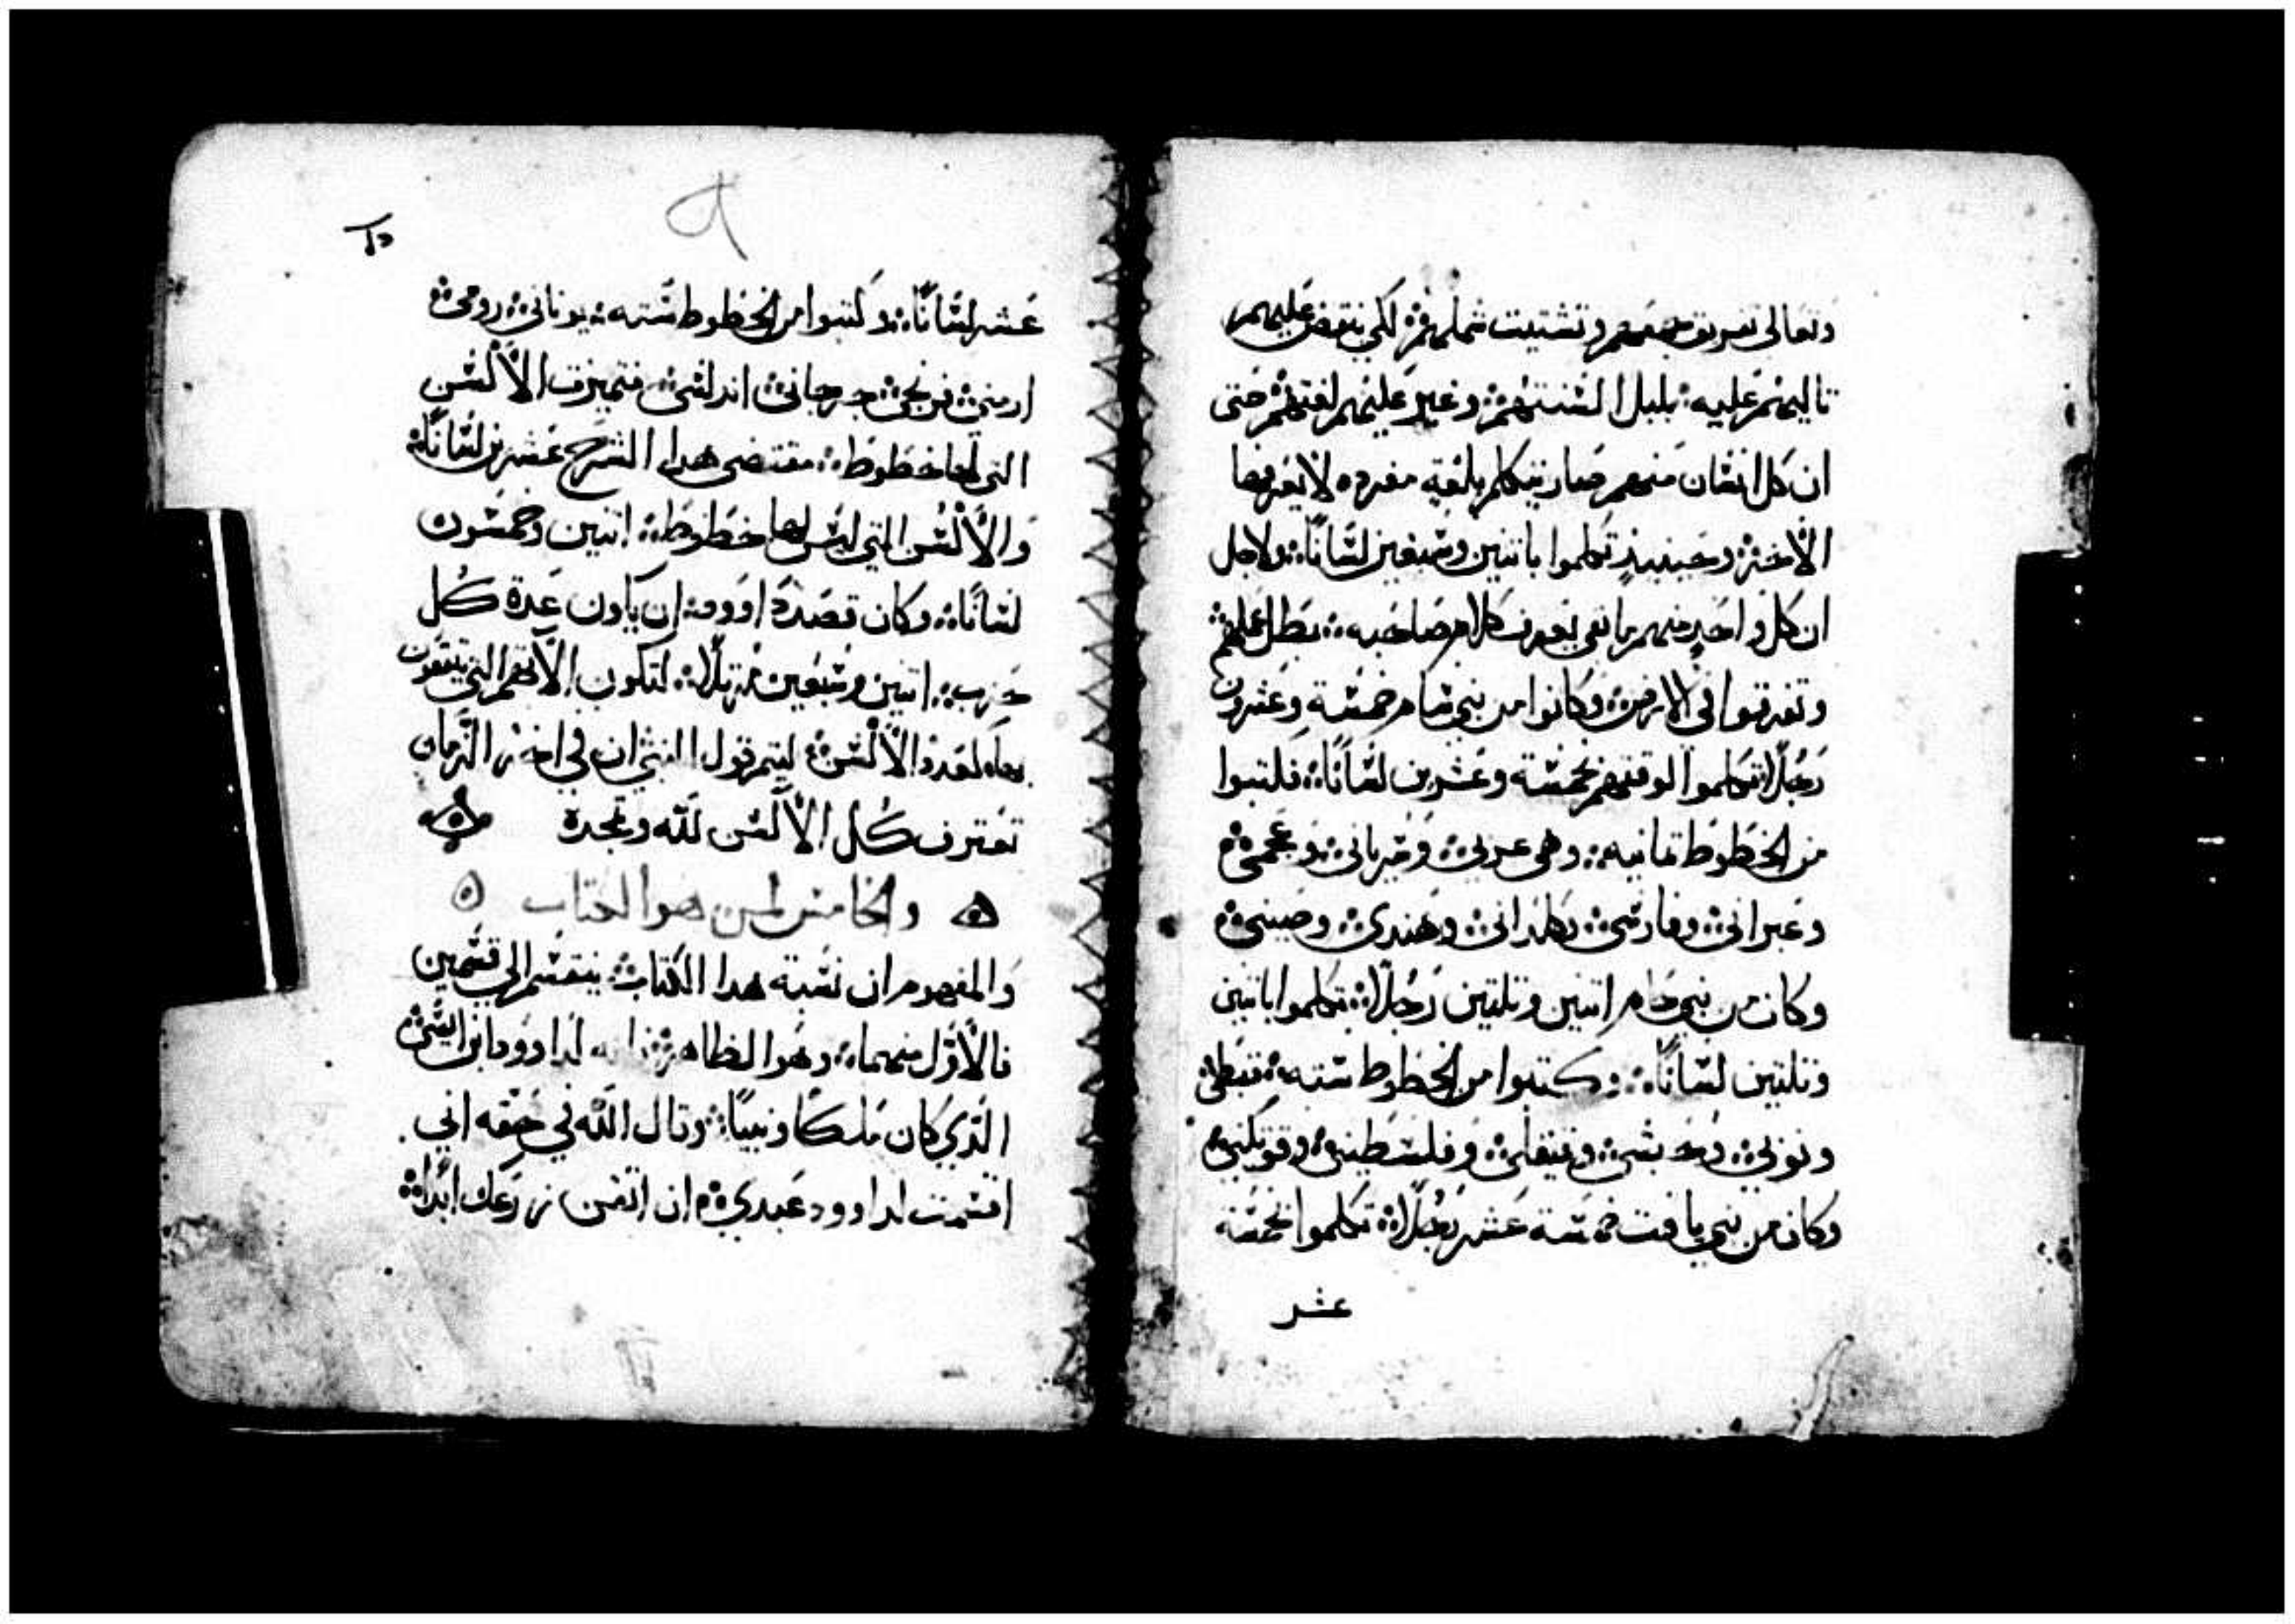 وتعالى تفريق جمعهم وتشتيت شملهم لكي ينقض عليهم
تاليهم عليه بلبل السنتهم وغير عليهم لغتهم حتى
ان كل انسان منهم صار يتكلم بلغه مفرده لا يعرفها
الاخر وحينيد تكلموا باتنين وسبعين لسانًا ولاجل
ان كل واحد منهم ما بقي يعرف كلام صاحبه بطل عملهم
وتفرقوا في الارض وكانوا من بني سام خمسة وعشرون
رجلًا تكلموا لوقتهم بخمسة وعشرين لسانًا فكتبوا
من الخطوط تمانيه وهي عربي وسرياني وعجمي
وعبراني وفارسي وكلداني وهندي وصيني
وكان من بني حام اتنين وتلتين رجلًا تكلموا باتنين
وتلتين لسانًا وكتبوا من الخطوط سته قبطي
ونوبي وحبشي وفلسطيني
وكان من بني يافت خمسة عشر رجلًا تكلموا بخمسة
عشر
عشر لسانًا وكتبوا من الخطوط سته يوناني رومي
ارمني فرنجي جرجاني اندلسي فتميزت الألسن
التي لها خطوط مقتضى هدا الشرح عشرين لسانًا
والألسن التي ليس لها خطوط اتنين وخمسون
لسانًا وكان قصد داوود ان يكون عدة كل
حزب اتنين وسبعين مرتلًا لتكون الانغم التي ينغمون
بها لعدد الألسن ليتم قول النبي ان في اخر الزمان
تعترف كل الألسن لله وتمجده
والخامس لمن هوا الكتاب
والمفهوم ان نسبة هدا الكتاب ينقسم الى قسمين
فالاول منهما وهوا الظاهر لداوود ابن ايسى
الذي كان ملكًا ونبيًا وقال الله في حقه اني
اقسمت لداوود عبدي ان اتقن زرعك ابدًا